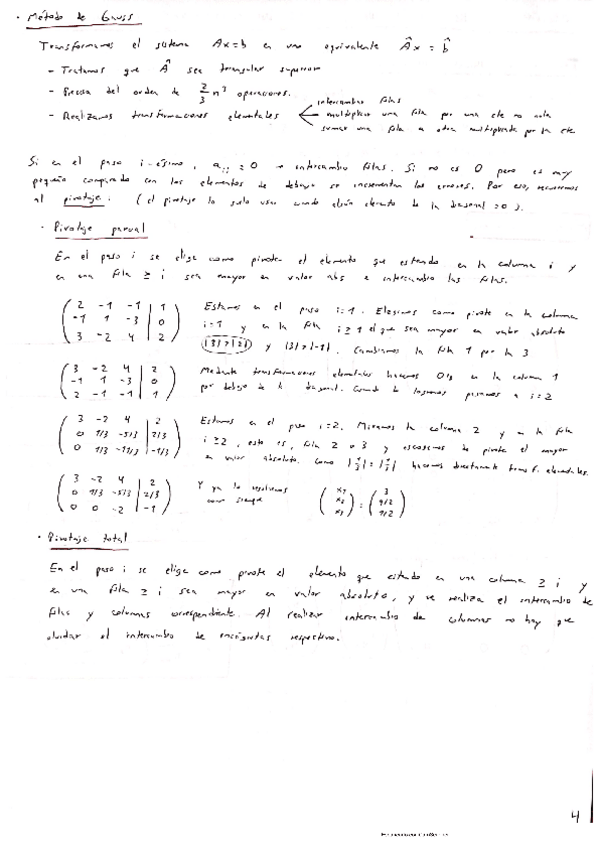 · Método de Gauss
Transformamos el sistema Ax=b en uno equivalente Âx = b̂
- Tratamos que Â sea triangular superior
- Precisa del orden de 2/3 n³ operaciones.
- Realizamos transformaciones elementales
intercambiar filas
multiplicar una fila por una cte no nula
sumar una fila a otra multiplicada por una cte
Si en el paso i-ésimo, aᵢᵢ = 0 → intercambio filas. Si no es 0 pero es muy
pequeño comparado con los elementos de debajo se incrementan los errores. Por eso, recurrimos
al pivotaje. (el pivotaje lo suelo usar cuando algún elemento de la diagonal = 0).
· Pivotaje parcial
En el paso i se elige como pivote el elemento que estando en la columna i y
en una fila ≥ i sea mayor en valor abs e intercambio las filas.
2 -1 -1 | 1
-1 1 -3 | 0
3 -2 4 | 2
Estamos en el paso i=1. Elegimos como pivote en la columna
i=1 y en la fila i≥1 el que sea mayor en valor absoluto
|3|>|2| y |3|>|-1|. Cambiamos la fila 1 por la 3
3 -2 4 | 2
-1 1 -3 | 0
2 -1 -1 | 1
Mediante transformaciones elementales hacemos 0s en la columna 1
por debajo de la diagonal. Cuando lo logramos pasamos a i=2
3 -2 4 | 2
0 1/3 -5/3 | 2/3
0 1/3 -11/3 | -1/3
Estamos en el paso i=2. Miramos la columna 2 y en la fila
i≥2, esto es, fila 2 o 3 y escogemos de pivote el mayor
en valor absoluto. Como |1/3|=|1/3| hacemos directamente transf. elementales.
3 -2 4 | 2
0 1/3 -5/3 | 2/3
0 0 -2 | -1
Y ya lo resolvemos
como siempre
· Pivotaje total
En el paso i se elige como pivote el elemento que estando en una columna ≥ i y
en una fila ≥ i sea mayor en valor absoluto, y se realiza el intercambio de
filas y columnas correspondiente. Al realizar intercambio de columnas no hay que
olvidar el intercambio de incógnitas respectivo.
4